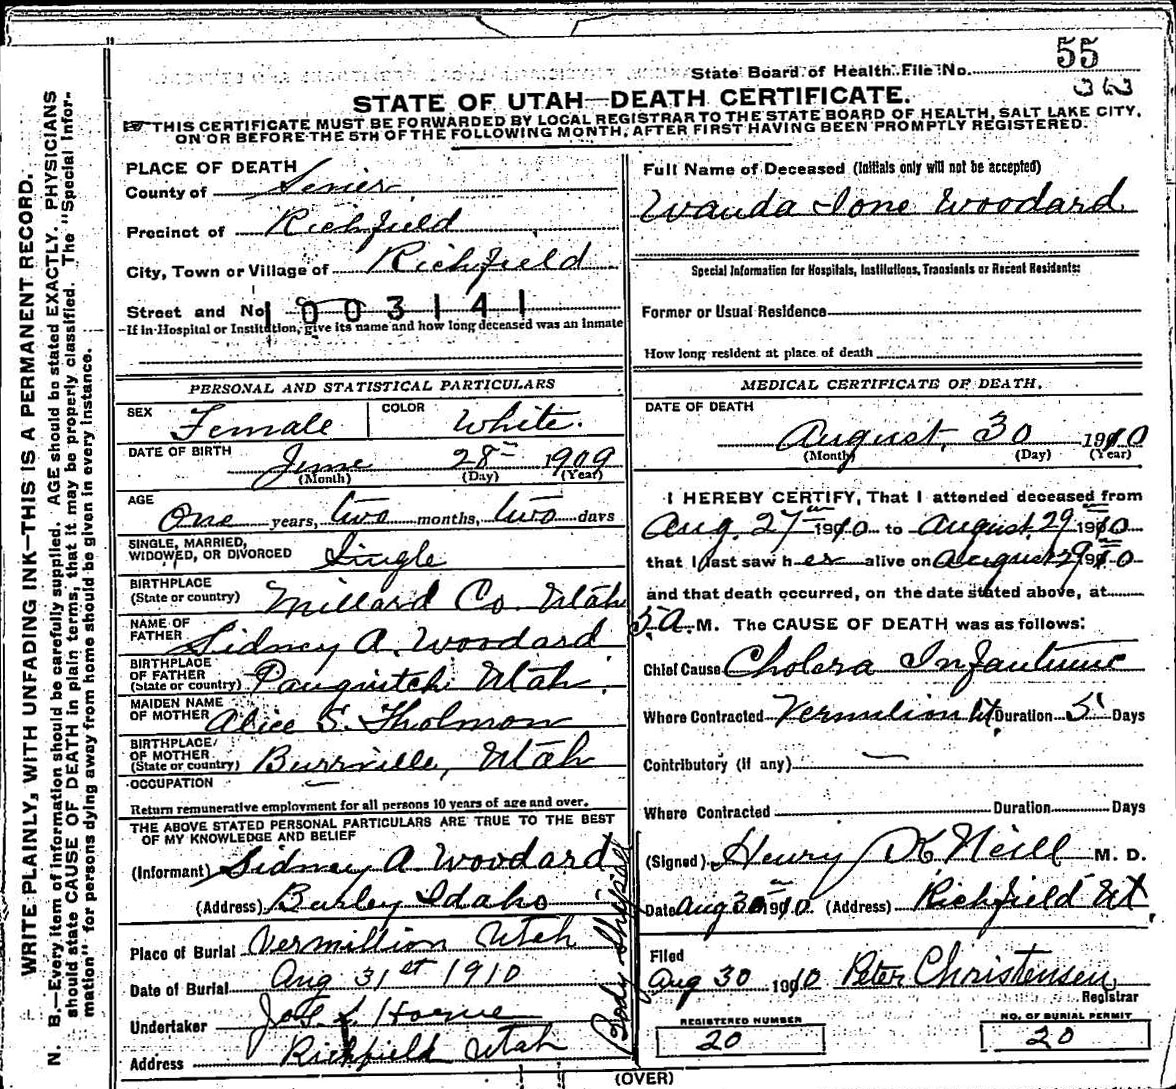 55
State Board of Health File No.
STATE OF UTAH—DEATH CERTIFICATE.
THIS CERTIFICATE MUST BE FORWARDED BY LOCAL REGISTRAR TO THE STATE BOARD OF HEALTH, SALT LAKE CITY,
ON OR BEFORE THE 5TH OF THE FOLLOWING MONTH, AFTER FIRST HAVING BEEN PROMPTLY REGISTERED.
WRITE PLAINLY, WITH UNFADING INK—THIS IS A PERMANENT RECORD.
N. B.—Every item of information should be carefully supplied. AGE should be stated EXACTLY. PHYSICIANS
should state CAUSE OF DEATH in plain terms, that it may be properly classified. The "Special Infor-
mation" for persons dying away from home should be given in every instance.
PLACE OF DEATH
County of Sevier
Precinct of Richfield
City, Town or Village of Richfield
Street and No. 1003141
If in Hospital or Institution, give its name and how long deceased was an inmate
PERSONAL AND STATISTICAL PARTICULARS
SEX Female COLOR White.
DATE OF BIRTH June 28 1909
(Month) (Day) (Year)
AGE
One years, two months, two days
SINGLE, MARRIED,
WIDOWED, OR DIVORCED Single
BIRTHPLACE
(State or country) Millard Co. Utah
NAME OF
FATHER Sidney A. Woodard
BIRTHPLACE
OF FATHER
(State or country) Panguitch Utah.
MAIDEN NAME
OF MOTHER Alice S. Tholmon
BIRTHPLACE
OF MOTHER
(State or country) Burrville, Utah
OCCUPATION —
Return remunerative employment for all persons 10 years of age and over.
THE ABOVE STATED PERSONAL PARTICULARS ARE TRUE TO THE BEST
OF MY KNOWLEDGE AND BELIEF
(Informant) Sidney A. Woodard
(Address) Burley Idaho
Place of Burial Vermillion Utah
Date of Burial Aug 31st 1910
Undertaker Horne
Address Richfield Utah
Body Shipped
Full Name of Deceased (Initials only will not be accepted)
Wanda Ione Woodard
Special Information for Hospitals, Institutions, Transients or Recent Residents:
Former or Usual Residence
How long resident at place of death
MEDICAL CERTIFICATE OF DEATH.
DATE OF DEATH
August 30 1910
(Month) (Day) (Year)
I HEREBY CERTIFY, That I attended deceased from
Aug. 27 1910 to August 29 1910
that I last saw her alive on August 29 1910
and that death occurred, on the date stated above, at
5 A. M. The CAUSE OF DEATH was as follows:
Chief Cause Cholera Infantum
Where Contracted Vermilion Ut. Duration 5 Days
Contributory (if any) —
Where Contracted Duration Days
(Signed) Henry K Neill M. D.
Date Aug 30 1910 (Address) Richfield Ut.
Filed
Aug 30 1910 Peter Christensen
Registrar
REGISTERED NUMBER
20
NO. OF BURIAL PERMIT
20
(OVER)